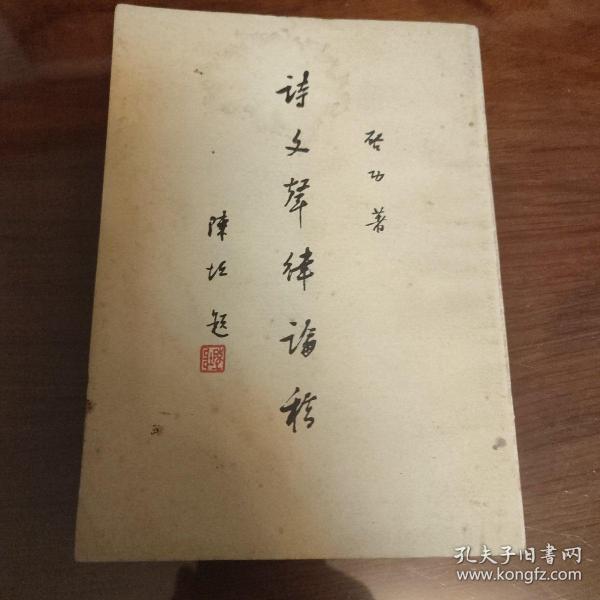 启功著
詩文聲律論稿
陳垣題
孔夫子旧书网
www.kongfz.com